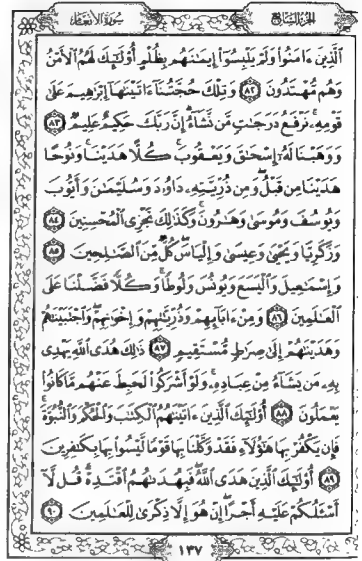 الجزء السابع سورة الأنعام
الَّذِينَ ءَامَنُوا۟ وَلَمْ يَلْبِسُوٓا۟ إِيمَـٰنَهُم بِظُلْمٍ أُو۟لَـٰٓئِكَ لَهُمُ ٱلْأَمْنُ
وَهُم مُّهْتَدُونَ ٨٢ وَتِلْكَ حُجَّتُنَآ ءَاتَيْنَـٰهَآ إِبْرَٰهِيمَ عَلَىٰ
قَوْمِهِۦ نَرْفَعُ دَرَجَـٰتٍ مَّن نَّشَآءُ إِنَّ رَبَّكَ حَكِيمٌ عَلِيمٌ ٨٣
وَوَهَبْنَا لَهُۥٓ إِسْحَـٰقَ وَيَعْقُوبَ كُلًّا هَدَيْنَا وَنُوحًا
هَدَيْنَا مِن قَبْلُ وَمِن ذُرِّيَّتِهِۦ دَاوُۥدَ وَسُلَيْمَـٰنَ وَأَيُّوبَ
وَيُوسُفَ وَمُوسَىٰ وَهَـٰرُونَ وَكَذَٰلِكَ نَجْزِى ٱلْمُحْسِنِينَ ٨٤
وَزَكَرِيَّا وَيَحْيَىٰ وَعِيسَىٰ وَإِلْيَاسَ كُلٌّ مِّنَ ٱلصَّـٰلِحِينَ ٨٥
وَإِسْمَـٰعِيلَ وَٱلْيَسَعَ وَيُونُسَ وَلُوطًا وَكُلًّا فَضَّلْنَا عَلَى
ٱلْعَـٰلَمِينَ ٨٦ وَمِنْ ءَابَآئِهِمْ وَذُرِّيَّـٰتِهِمْ وَإِخْوَٰنِهِمْ وَٱجْتَبَيْنَـٰهُمْ
وَهَدَيْنَـٰهُمْ إِلَىٰ صِرَٰطٍ مُّسْتَقِيمٍ ٨٧ ذَٰلِكَ هُدَى ٱللَّهِ يَهْدِى
بِهِۦ مَن يَشَآءُ مِنْ عِبَادِهِۦ وَلَوْ أَشْرَكُوا۟ لَحَبِطَ عَنْهُم مَّا كَانُوا۟
يَعْمَلُونَ ٨٨ أُو۟لَـٰٓئِكَ ٱلَّذِينَ ءَاتَيْنَـٰهُمُ ٱلْكِتَـٰبَ وَٱلْحُكْمَ وَٱلنُّبُوَّةَ
فَإِن يَكْفُرْ بِهَا هَـٰٓؤُلَآءِ فَقَدْ وَكَّلْنَا بِهَا قَوْمًا لَّيْسُوا۟ بِهَا بِكَـٰفِرِينَ
٨٩ أُو۟لَـٰٓئِكَ ٱلَّذِينَ هَدَى ٱللَّهُ فَبِهُدَىٰهُمُ ٱقْتَدِهْ قُل لَّآ
أَسْـَٔلُكُمْ عَلَيْهِ أَجْرًا إِنْ هُوَ إِلَّا ذِكْرَىٰ لِلْعَـٰلَمِينَ ٩٠
١٣٧